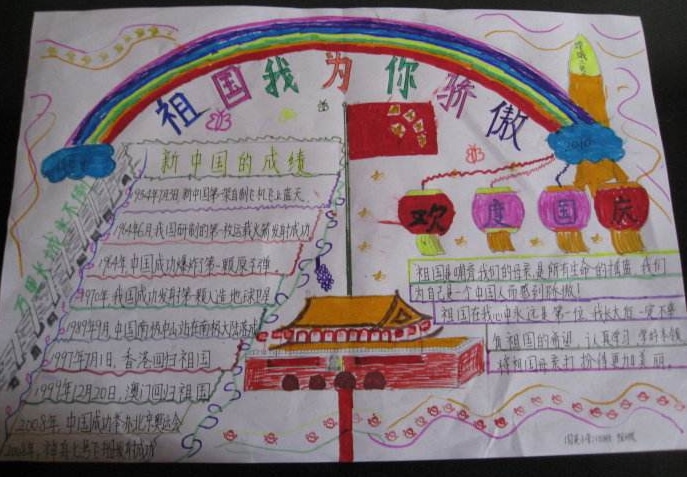 祖国我为你骄傲
新中国的成绩
1954年7月3日新中国第一架自制飞机飞上蓝天
1964年6月我国研制的第一枚运载火箭发射成功
1964年中国成功爆炸了第一颗原子弹
1970年我国成功发射第一颗人造地球卫星
1989年9月中国南极中山站在南极大陆落成
1997年7月1日,香港回归祖国
1999年12月20日,澳门回归祖国
2008年,中国成功举办北京奥运会
2008年,神舟七号飞船发射成功
万里长城永不倒
2010
欢度国庆
祖国是哺育我们的母亲,是所有生命的摇篮,我们
为自己是一个中国人而感到骄傲!
祖国在我心中永远是第一位,我长大后一定不辜
负祖国的希望,认真学习,学好本领
将祖国母亲打扮得更加美丽。